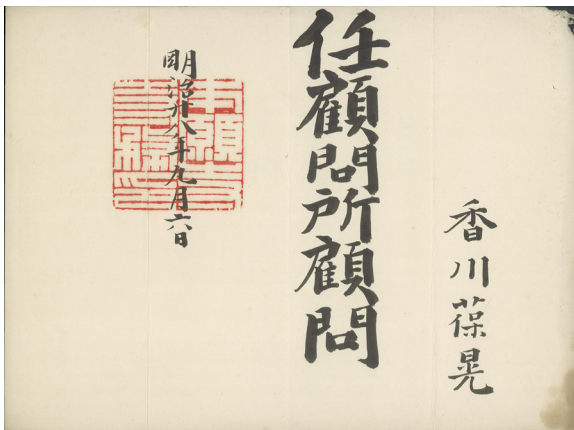 香川葆晃
任顧問所顧問
明治廿八年九月六日
本願寺